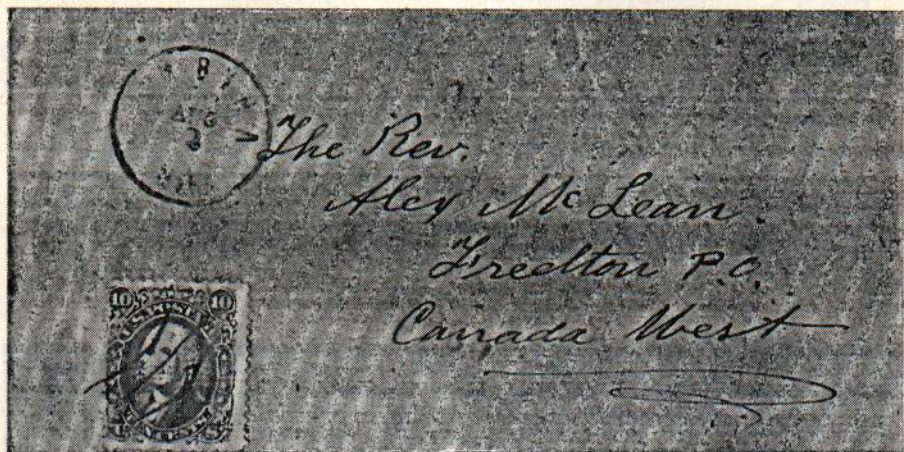 AUG
The Rev.
Alex McLean.
Freelton P.O.
Canada West
10 10